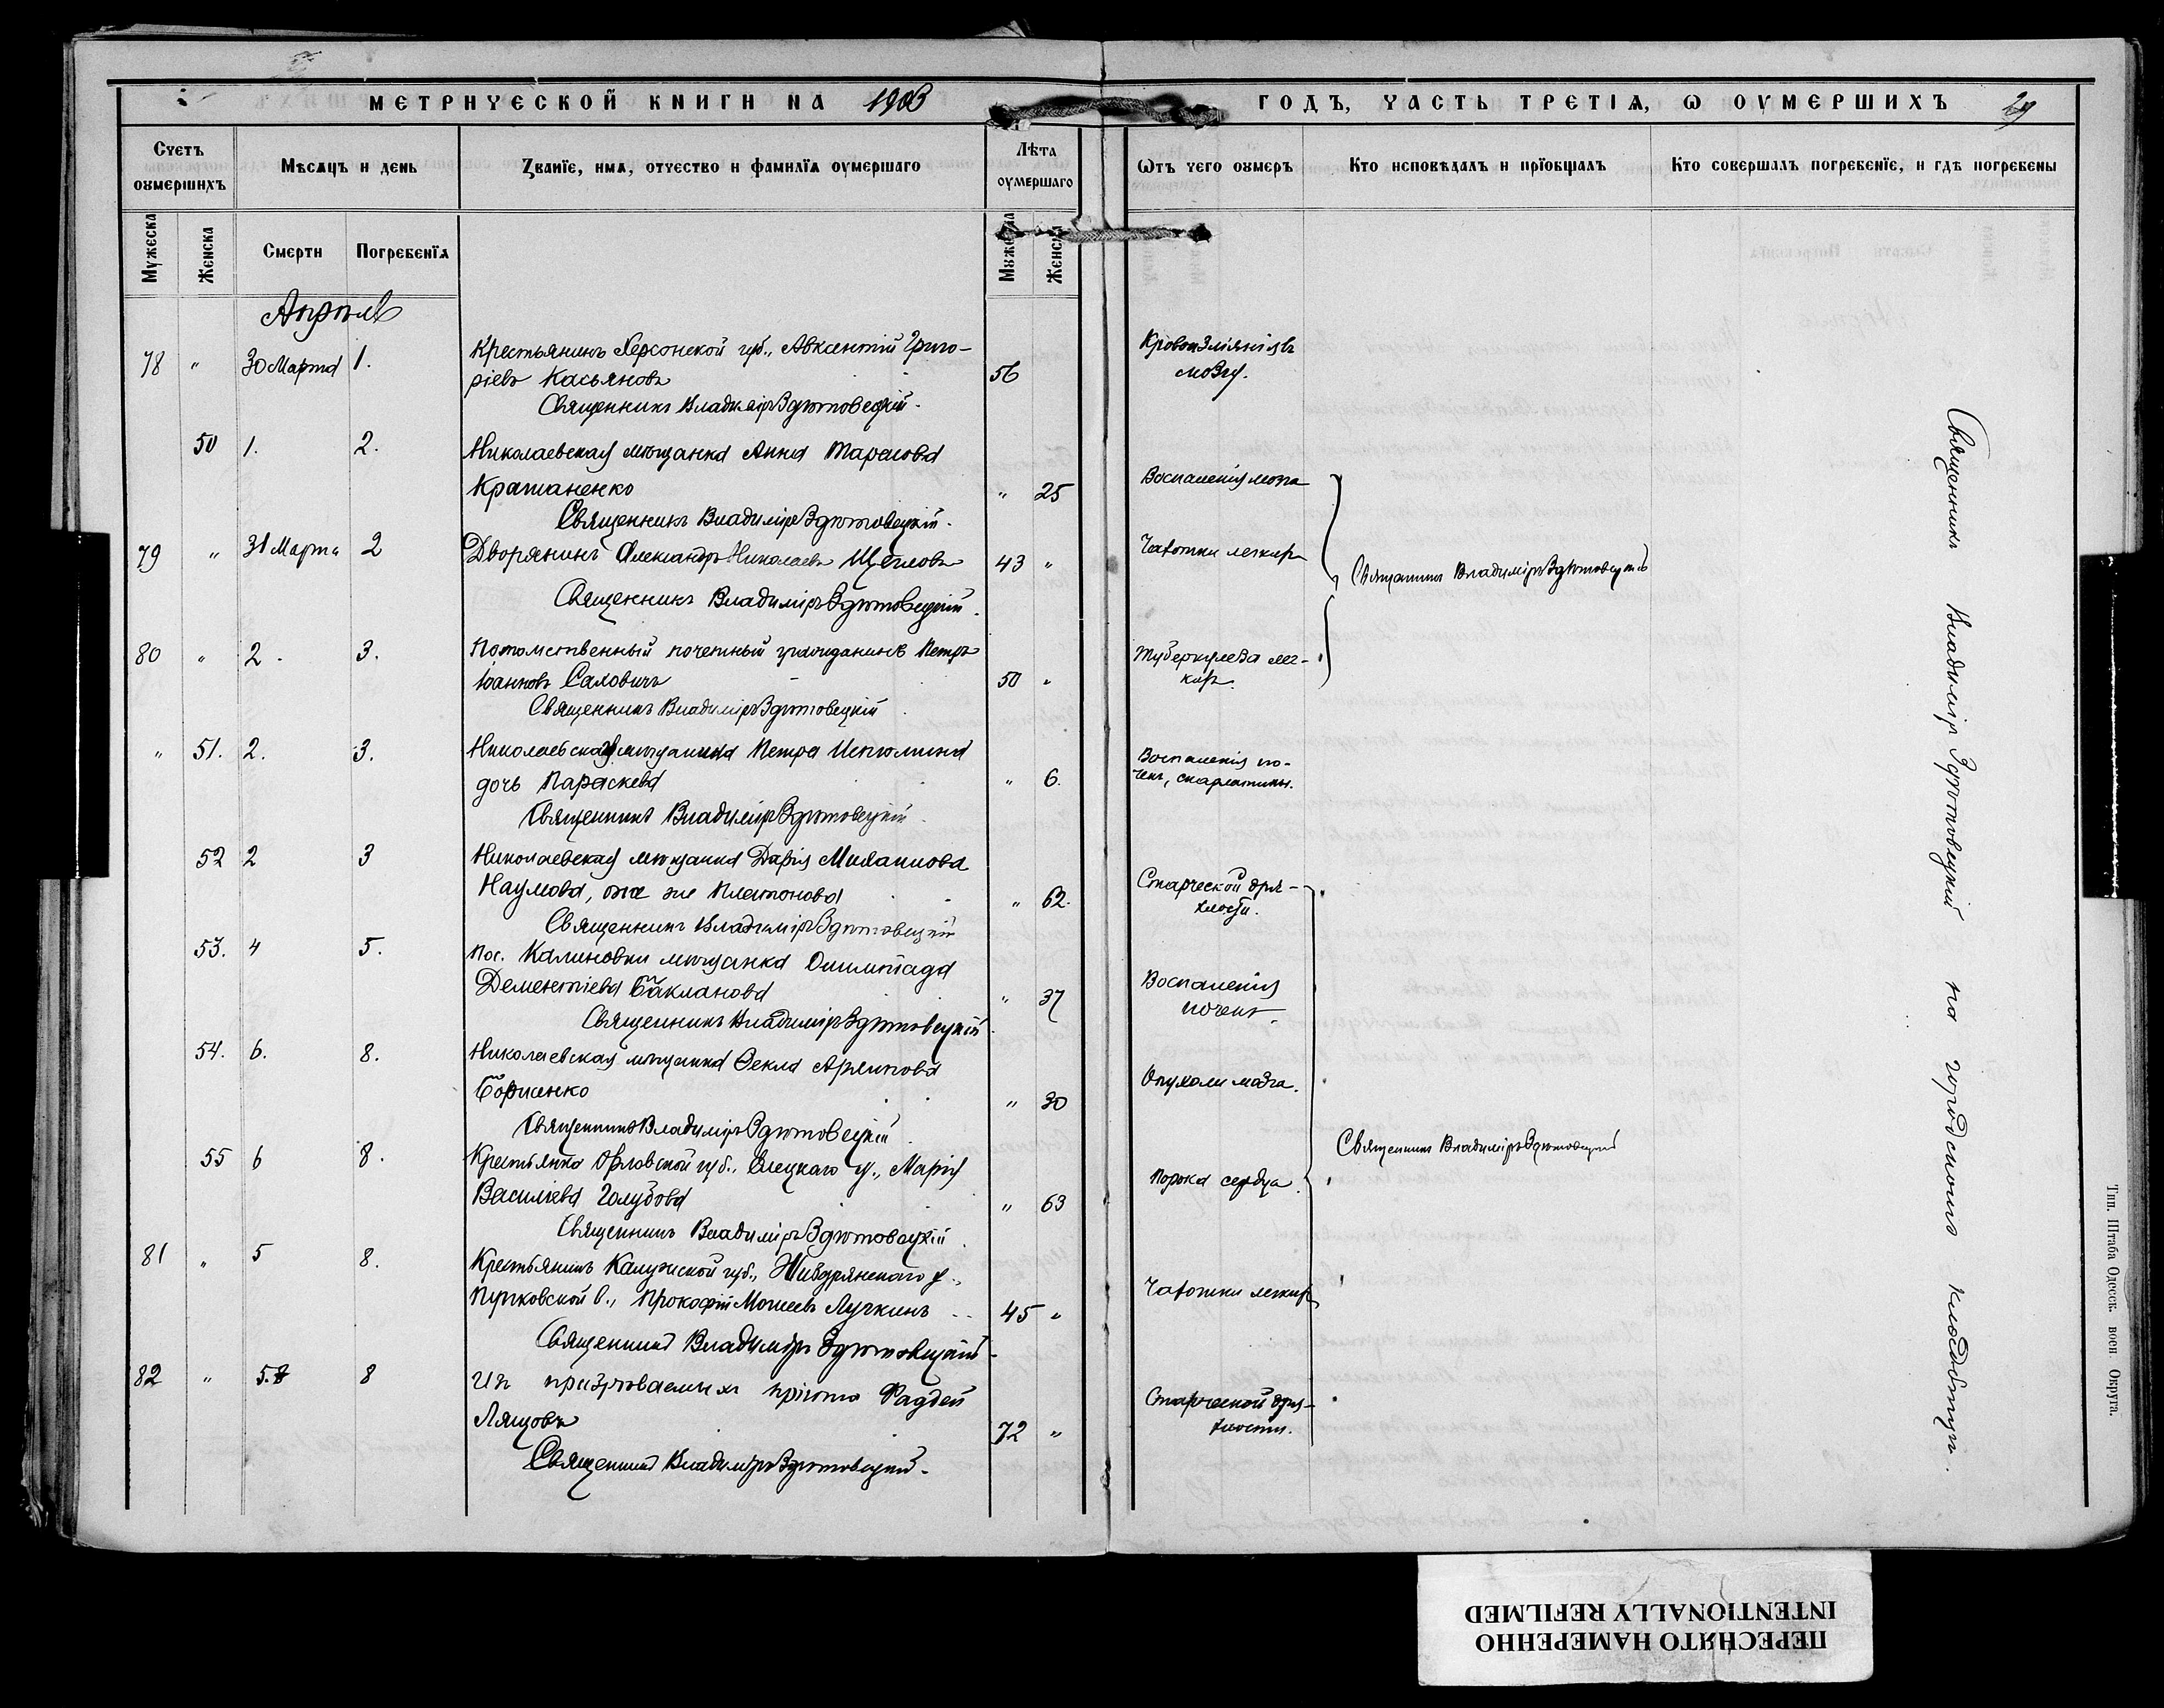 МЕТРИЧЕСКОЙ КНИГИ НА 1903 ГОДЪ, ЧАСТЬ ТРЕТІѦ, Ѡ ОУМЕРШИХЪ 29
Счетъ оумершихъ
Мѣсяцъ и день
Званіе, имя, отчество и фамилія оумершаго
Лѣта оумершаго
Ѿтъ чего оумеръ
Кто исповѣдалъ и пріобщалъ
Кто совершалъ погребеніе, и гдѣ погребены
Мужеска Женска Смерти Погребенія Мужеска Женска
Апрѣль
78 " 30 Марта 1. Крестьянинъ Херсонской губ., Авксентій Григо-
ріевъ Касьяновъ 56
Кровоизліянія въ
мозгу.
Священникъ Владиміръ Здѣтовецкій.
50 1. 2. Николаевская мѣщанка Анна Тарасова
Кратаненко " 25
Воспаленія мозга
Священникъ Владиміръ Здѣтовецкій.
79 " 31 Марта 2 Дворянинъ Александръ Николаевъ Щегловъ 43 "
Чахотки легкихъ
Священникъ Владиміръ Здѣтовецкій
Священникъ Владиміръ Здѣтовецкій.
80 " 2. 3. Потомственный почетный гражданинъ Петръ
Іоанновъ Саловичъ 50 "
Туберкулеза лег-
кихъ.
Священникъ Владиміръ Здѣтовецкій
" 51. 2. 3. Николаевскаго мѣщанина Петра
дочь Параскева " 6.
Воспаленія по-
чекъ, скарлатины.
Священникъ Владиміръ Здѣтовецкій
52 2 3 Николаевская мѣщанка Дарія
Наумова, она же Платонова " 62.
Старческой дря-
хлости.
Священникъ Владиміръ Здѣтовецкій
53. 4 5. Пос. Калиновки мѣщанка Олимпіада
Дементіева Бакланова " 37
Воспаленія
почекъ.
Священникъ Владиміръ Здѣтовецкій.
54. 6. 8. Николаевская мѣщанка Ѳекла Архипова
Борисенко " 30
Опухоли мозга.
Священникъ Владиміръ Здѣтовецкій
55 6 8. Крестьянка Орловской губ., Елецкаго у., Марія
Василіева Голубова " 63
Порока сердца
Священникъ Владиміръ Здѣтовецкій
Священникъ Владиміръ Здѣтовецкій.
81 " 5 8. Крестьянинъ Калужской губ., Жиздрянскаго у.,
Пупковской в., Прокофій Моисеевъ Лучкинъ 45 "
Чахотки легкихъ
Священникъ Владиміръ Здѣтовецкій
82 " 5. 8 Изъ призрѣваемыхъ пріюта Фаддей
Лящовъ 72 "
Старческой дря-
хлости.
Священникъ Владиміръ Здѣтовецкій.
Священникъ Владиміръ Здѣтовецкій на городскомъ кладбищѣ.
Тип. Штаба Одесск. воен Округа.
ПЕРЕСНЯТО НАМЕРЕННО
INTENTIONALLY REFILMED